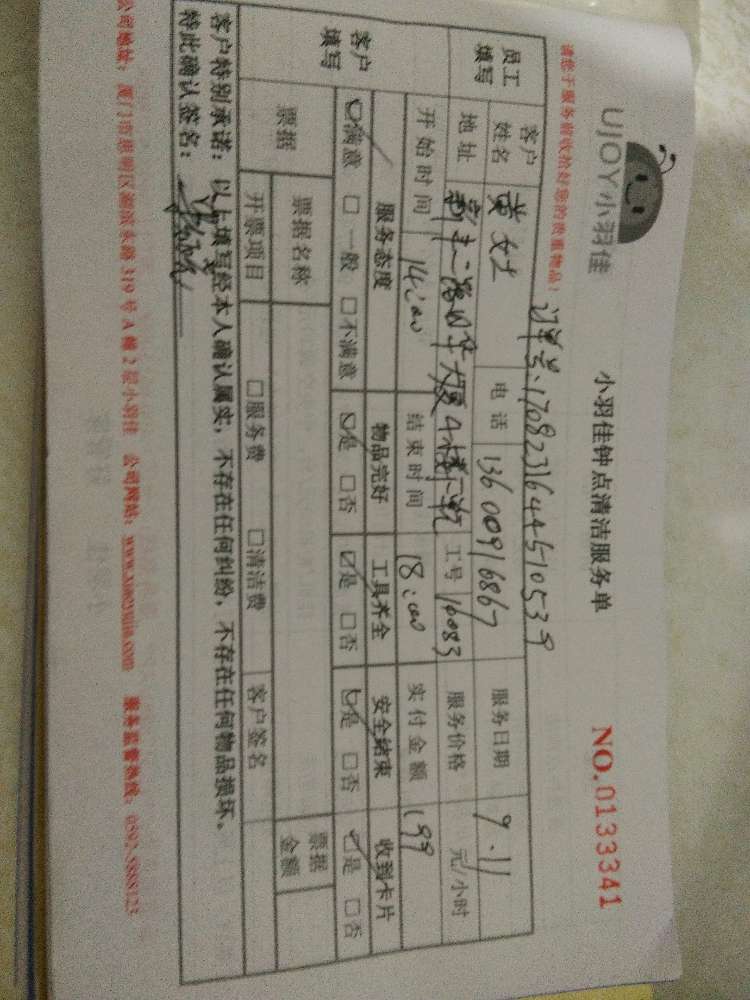 UJOY小羽佳
小羽佳钟点清洁服务单
NO.0133341
请您于服务前收拾好您的贵重物品!
订单号:1708231644510539
员工填写
客户姓名 黄女士 电话 13600916867 服务日期 9.11
地址 工号 16083 服务价格 元/小时
开始时间 14:00 结束时间 18:00 实付金额 199
客户填写
服务态度 物品完好 工具齐全 安全结束 收到卡片
☑满意 □一般 □不满意 ☑是 □否 ☑是 □否 ☑是 □否 ☑是 □否
票据 票据名称 票据金额
开票项目 □服务费 □清洁费 客户签名
客户特别承诺:以上填写经本人确认属实,不存在任何纠纷,不存在任何物品损坏。
特此确认签名:
公司地址:厦门市思明区湖滨东路319号A幢2层小羽佳 公司网站:www.xiaoyujia.com 服务监督热线:0592-5888123